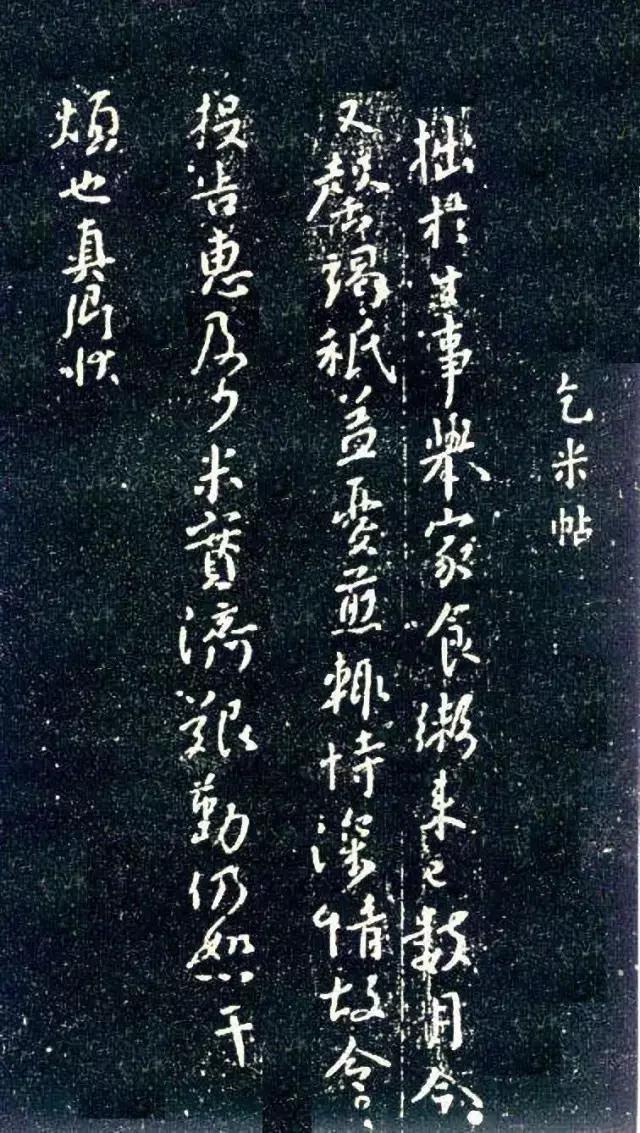 乞米帖
拙於生事舉家食粥来已數月今
又罄竭秖益憂煎輒恃深情故令
投告惠及少米實濟艱勤仍恕干
煩也真卿狀